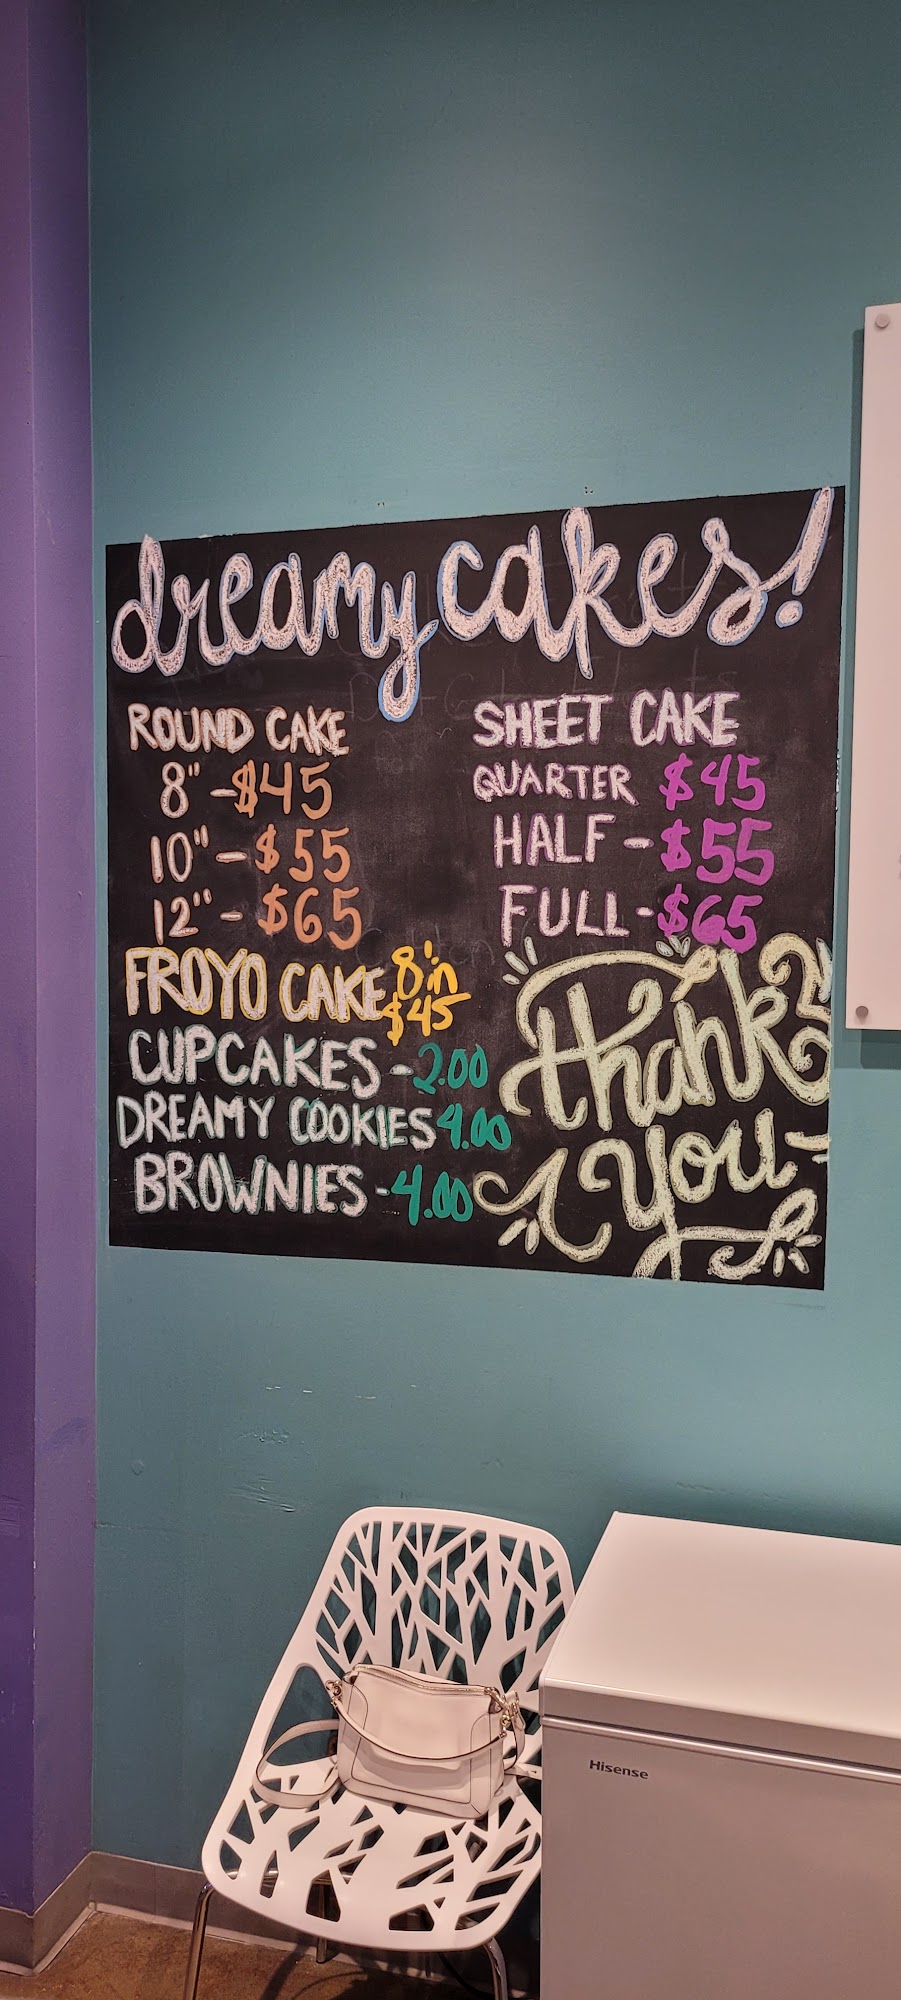 dreamy cakes!
ROUND CAKE
8" - $45
10" - $55
12" - $65
SHEET CAKE
QUARTER $45
HALF - $55
FULL - $65
FROYO CAKE 8in $45
CUPCAKES - 2.00
DREAMY COOKIES 4.00
BROWNIES - 4.00
Thank
you
Hisense